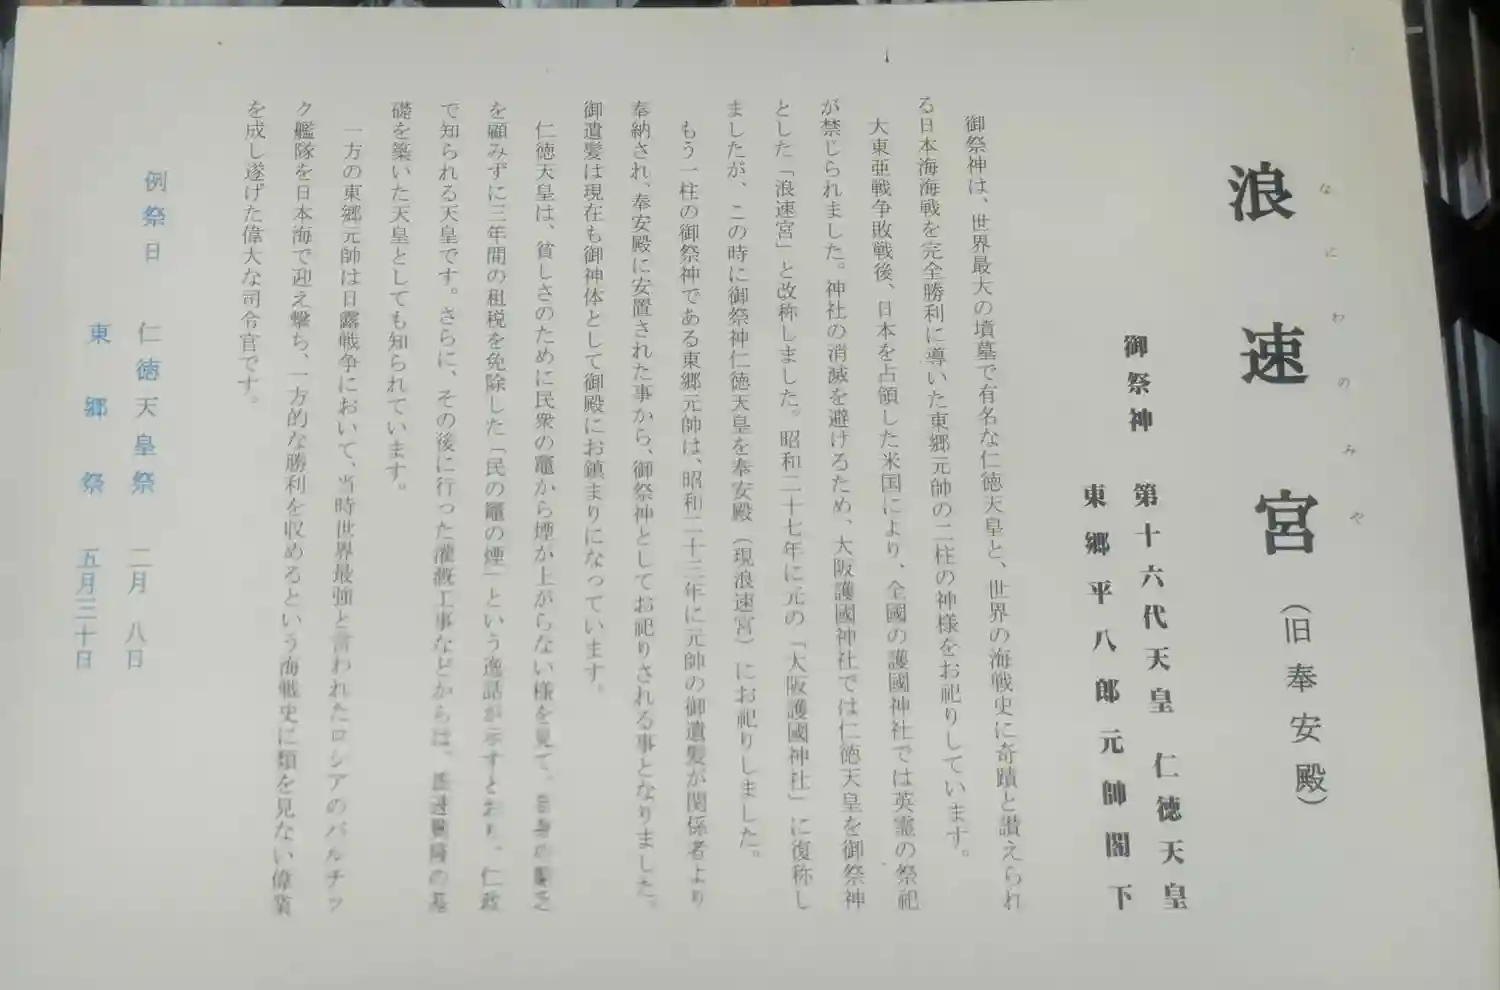 なにわのみや
浪速宮（旧奉安殿）
御祭神　第十六代天皇　仁徳天皇
東郷平八郎元帥閣下
御祭神は、世界最大の墳墓で有名な仁徳天皇と、世界の海戦史に奇蹟と讃えられ
る日本海海戦を完全勝利に導いた東郷元帥の二柱の神様をお祀りしています。
大東亜戦争敗戦後、日本を占領した米国により、全國の護國神社では英霊の祭祀
が禁じられました。神社の消滅を避けるため、大阪護國神社では仁徳天皇を御祭神
とした「浪速宮」と改称しました。昭和二十七年に元の「大阪護國神社」に復称し
ましたが、この時に御祭神仁徳天皇を奉安殿（現浪速宮）にお祀りしました。
もう一柱の御祭神である東郷元帥は、昭和二十三年に元帥の御遺髪が関係者より
奉納され、奉安殿に安置された事から、御祭神としてお祀りされる事となりました。
御遺髪は現在も御神体として御殿にお鎮まりになっています。
仁徳天皇は、貧しさのために民衆の竈から煙が上がらない様を見て、自身の窮乏
を顧みずに三年間の租税を免除した「民の竈の煙」という逸話が示すとおり、仁政
で知られる天皇です。さらに、その後に行った灌漑工事などからは、の基
礎を築いた天皇としても知られています。
一方の東郷元帥は日露戦争において、当時世界最強と言われたロシアのバルチッ
ク艦隊を日本海で迎え撃ち、一方的な勝利を収めるという海戦史に類を見ない偉業
を成し遂げた偉大な司令官です。
例祭日　仁徳天皇祭　二月　八日
東郷祭　五月三十日